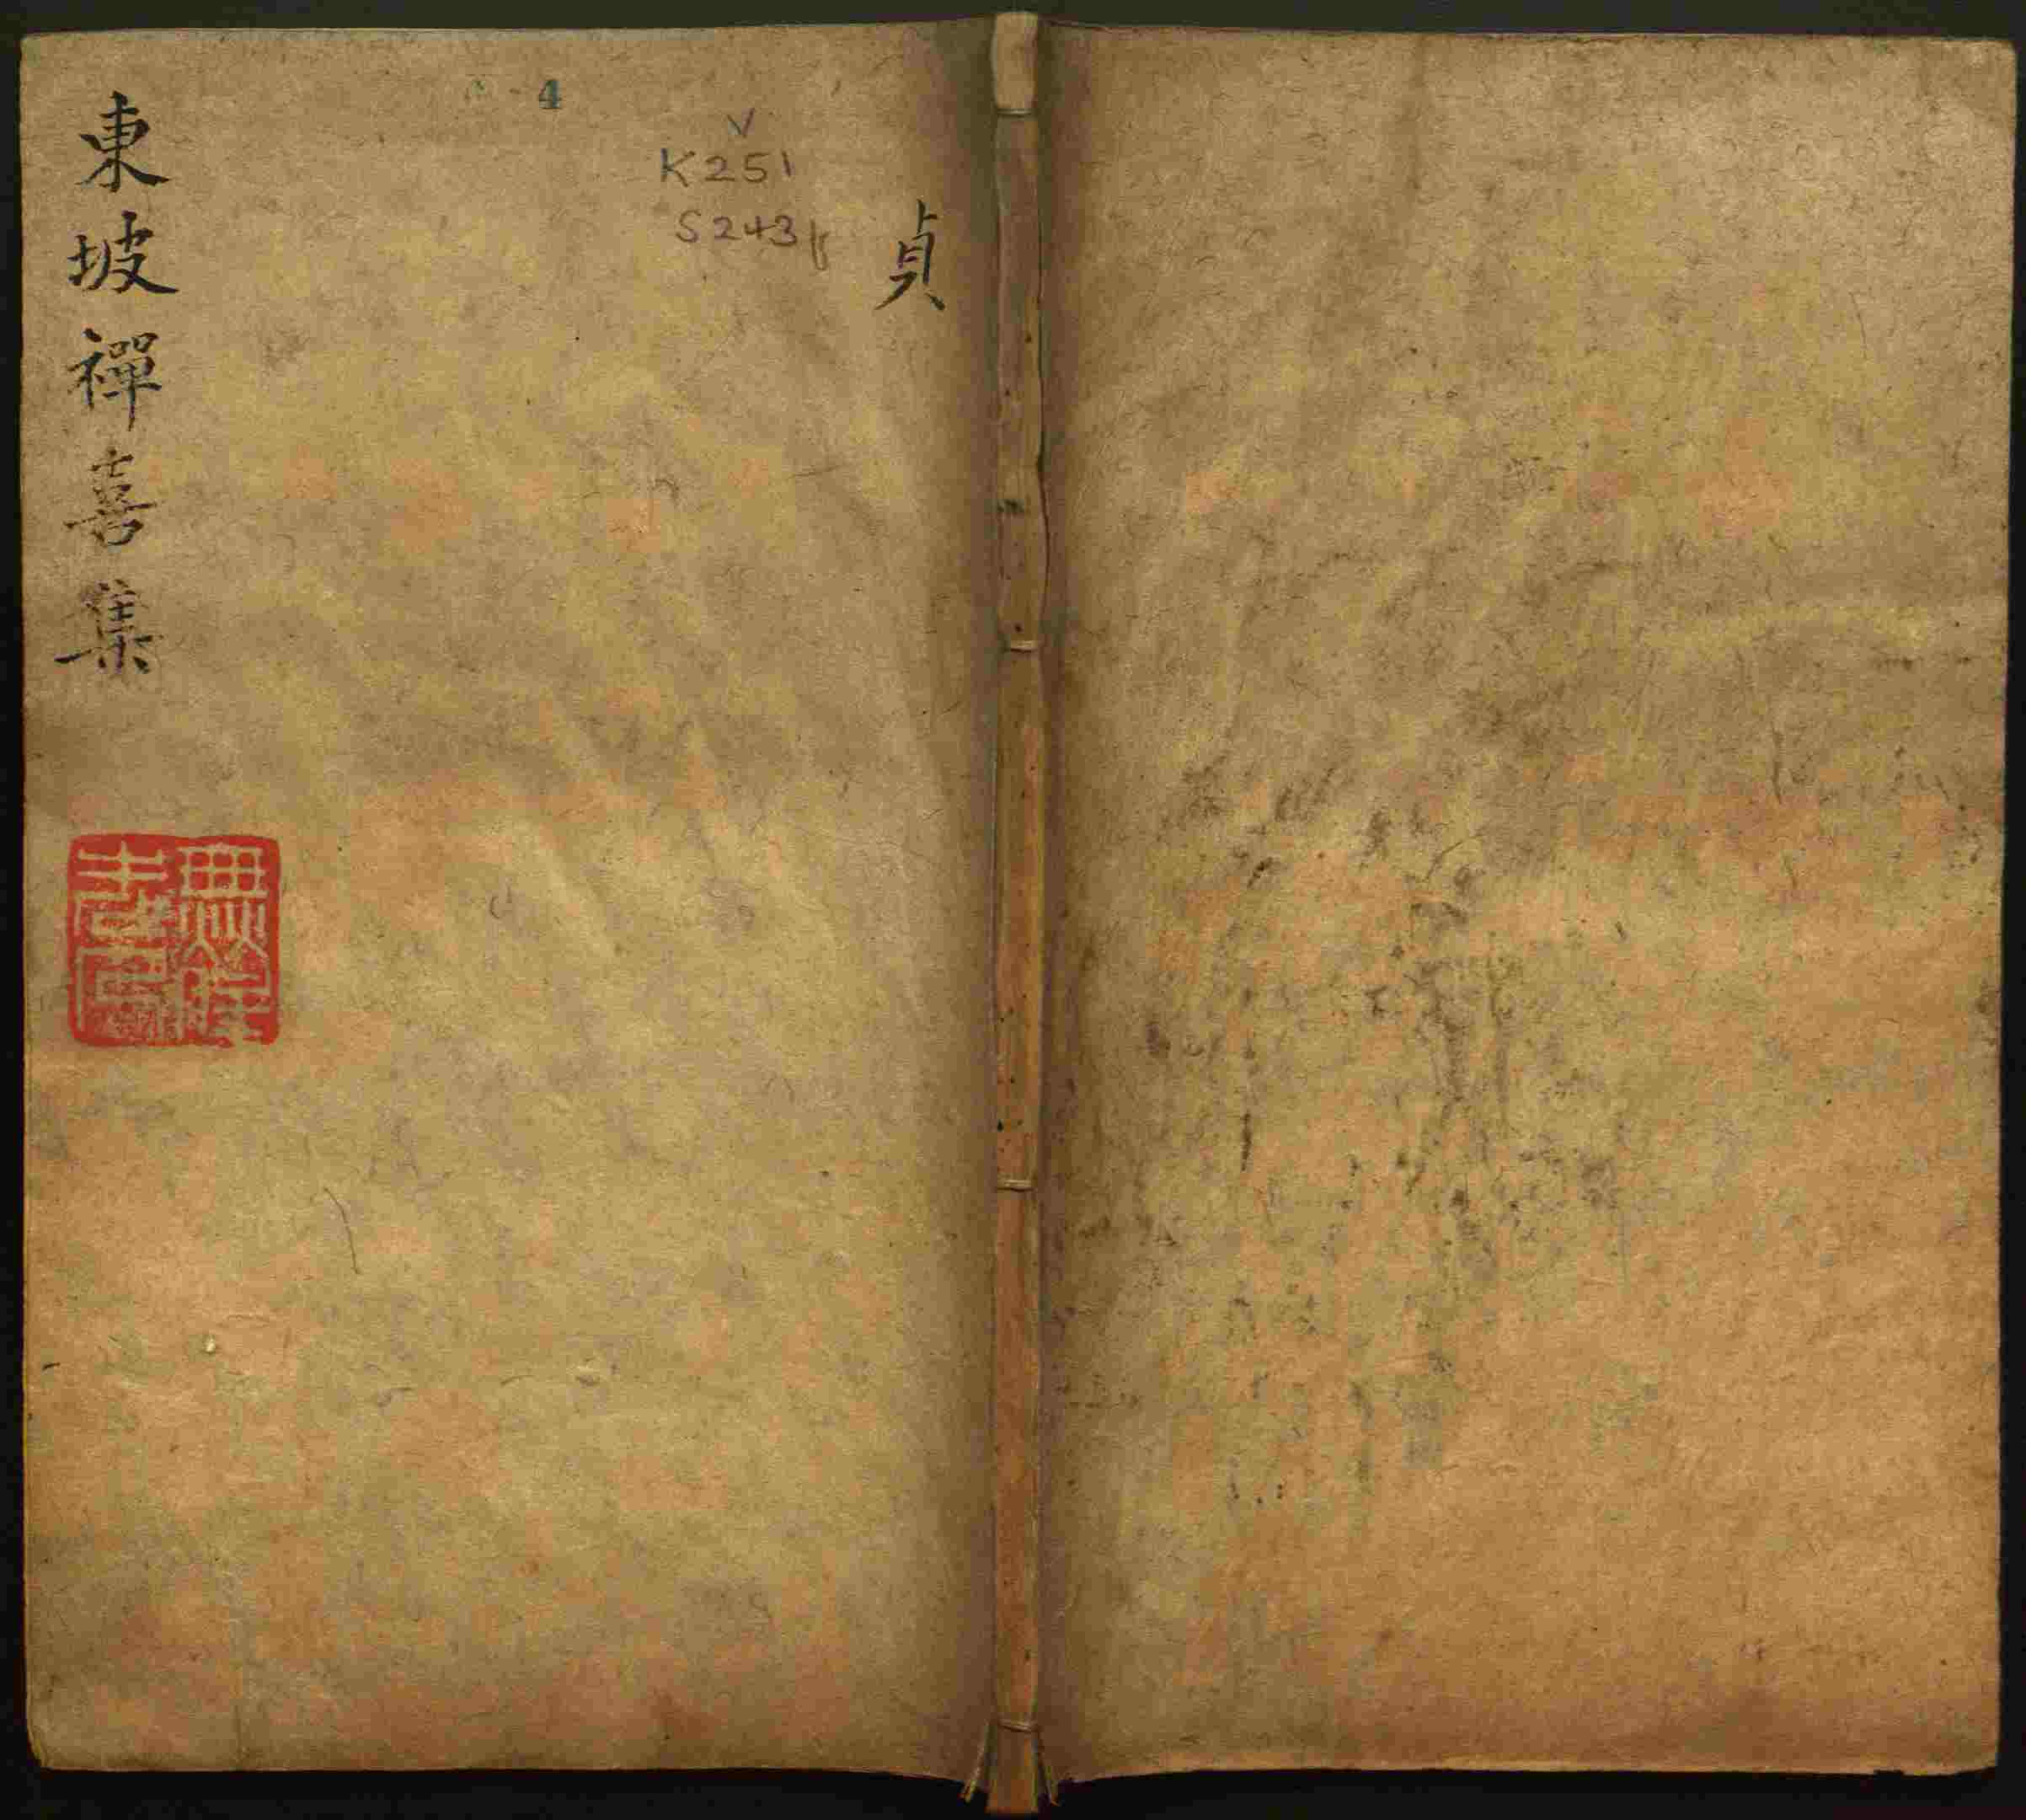 東坡禪喜集
貞
4
K251
S243